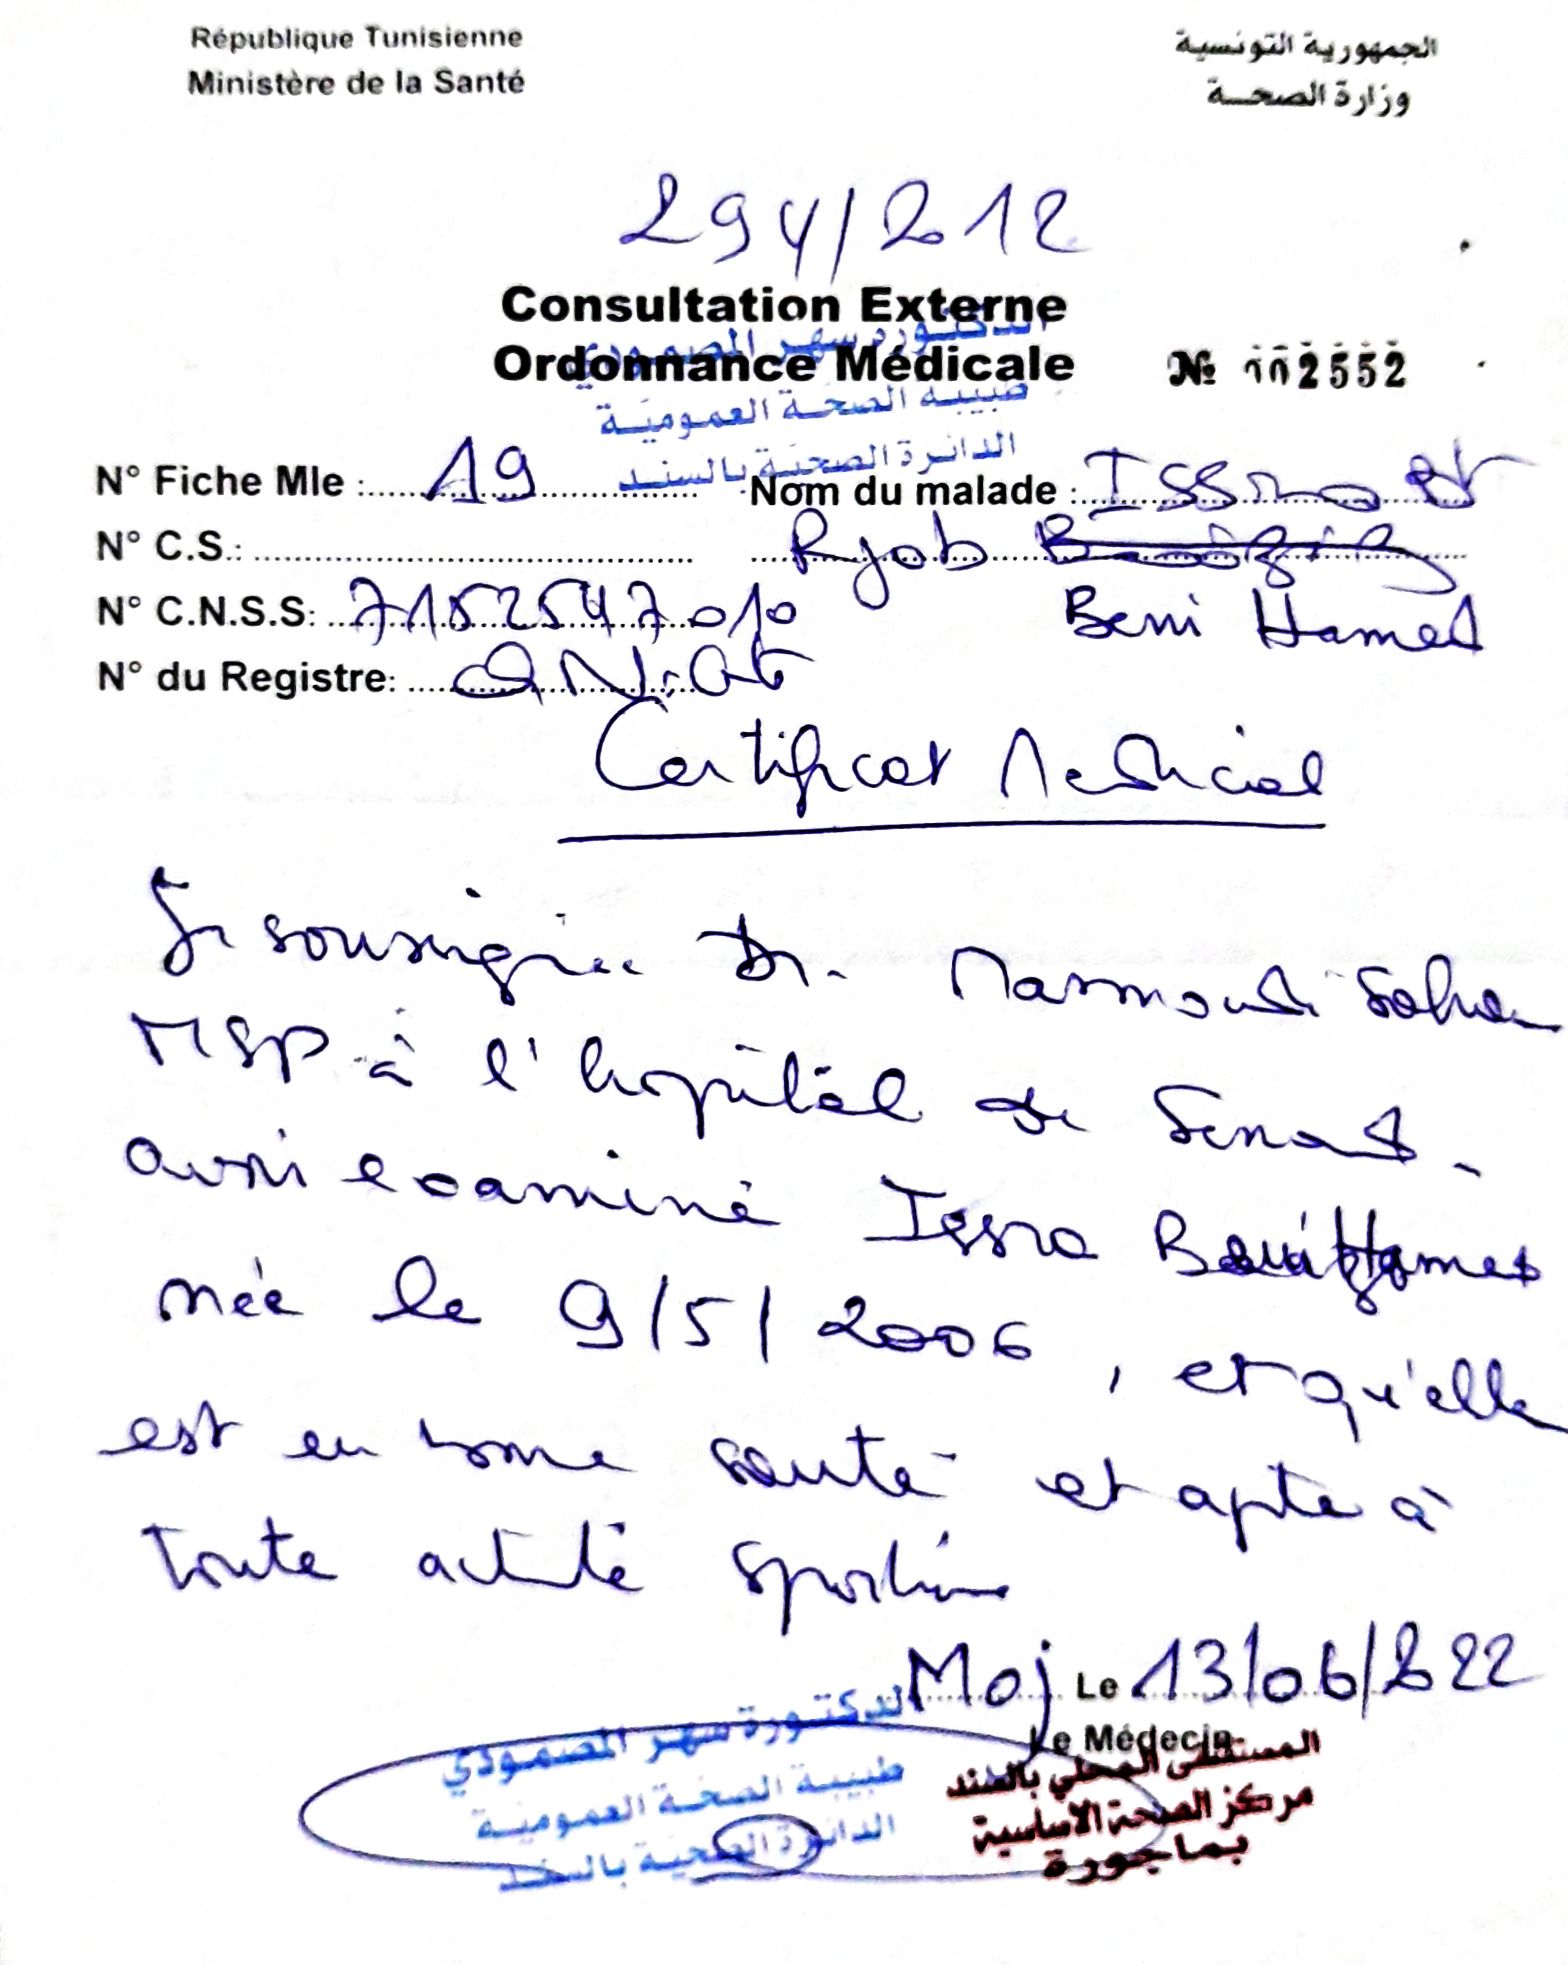 République Tunisienne
Ministère de la Santé
الجمهورية التونسية
وزارة الصحة
294/212
Consultation Externe
Ordonnance Médicale
№ 002552
الدكتورة سهر المصمودي
طبيبة الصحة العمومية
الدائرة الصحية بالسند
N° Fiche Mle : 19
Nom du malade : Issra et
N° C.S.:
Rjab
N° C.N.S.S: 7152547 010
Beni Hamed
N° du Registre:
Certificat Medical
Je soussignée Dr. Masmoudi Saher
MSP à l'hopital de Senad.
avoir examiné Issra Beni Hamed
née le 9/5/2006, et qu'elle
est en bonne santé et apte à
toute activité sportive
Maj Le 13/06/2022
Le Médecin
الدكتورة سهر المصمودي
طبيبة الصحة العمومية
الدائرة الصحية بالسند
المستشفى المحلي بالسند
مركز الصحة الأساسية
بماجورة